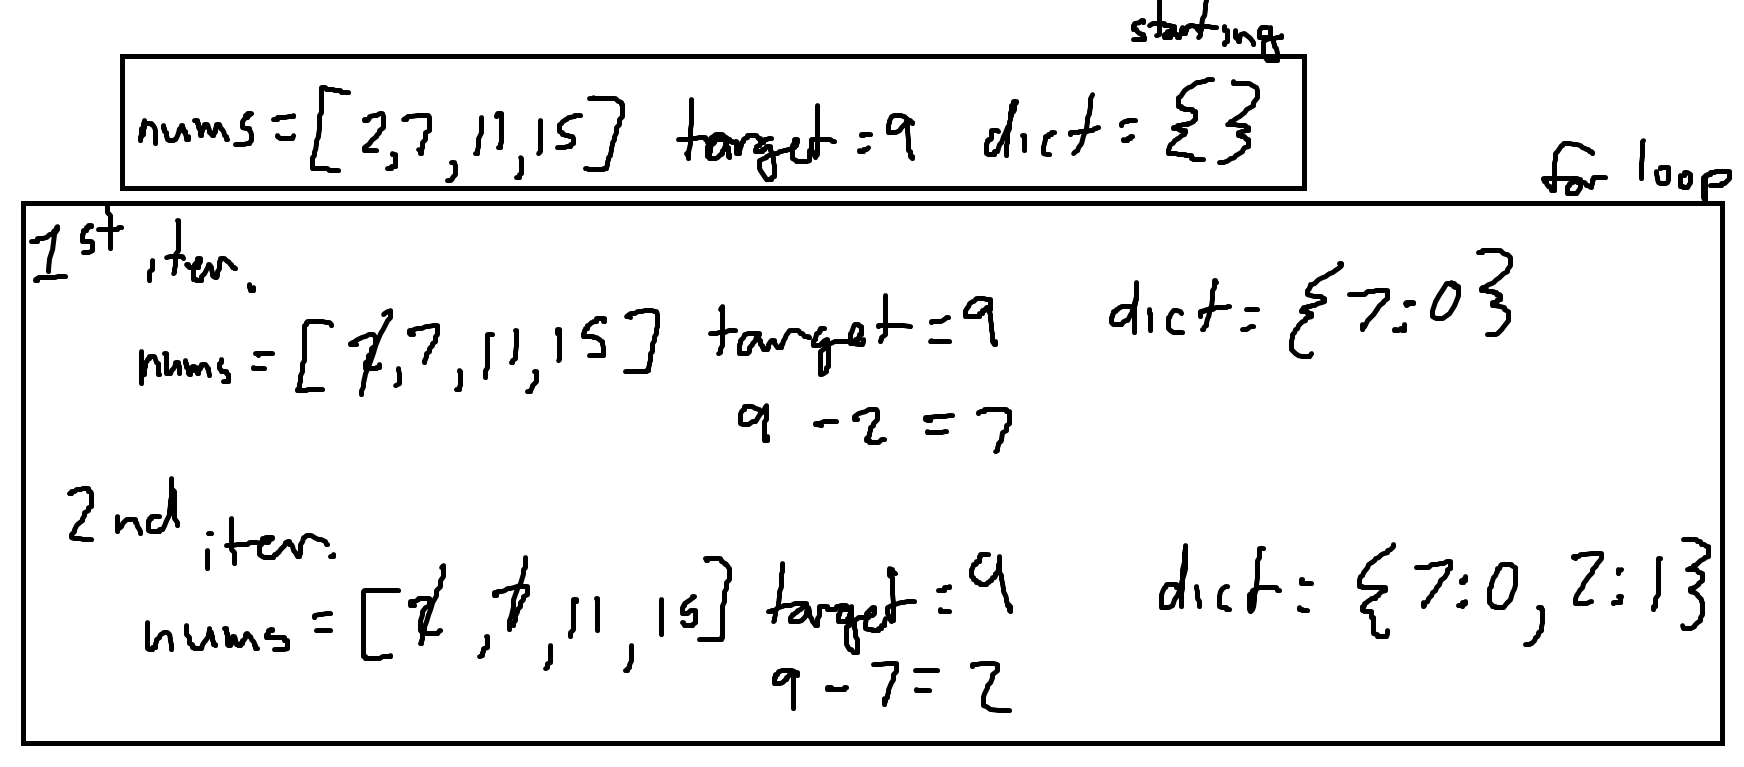 starting
nums = [2,7,11,15] target = 9 dict = {}
for loop
1st iter.
nums = [2,7,11,15] target = 9 dict = {7:0}
9 - 2 = 7
2nd iter.
nums = [2,7,11,15] target = 9 dict = {7:0, 2:1}
9 - 7 = 2